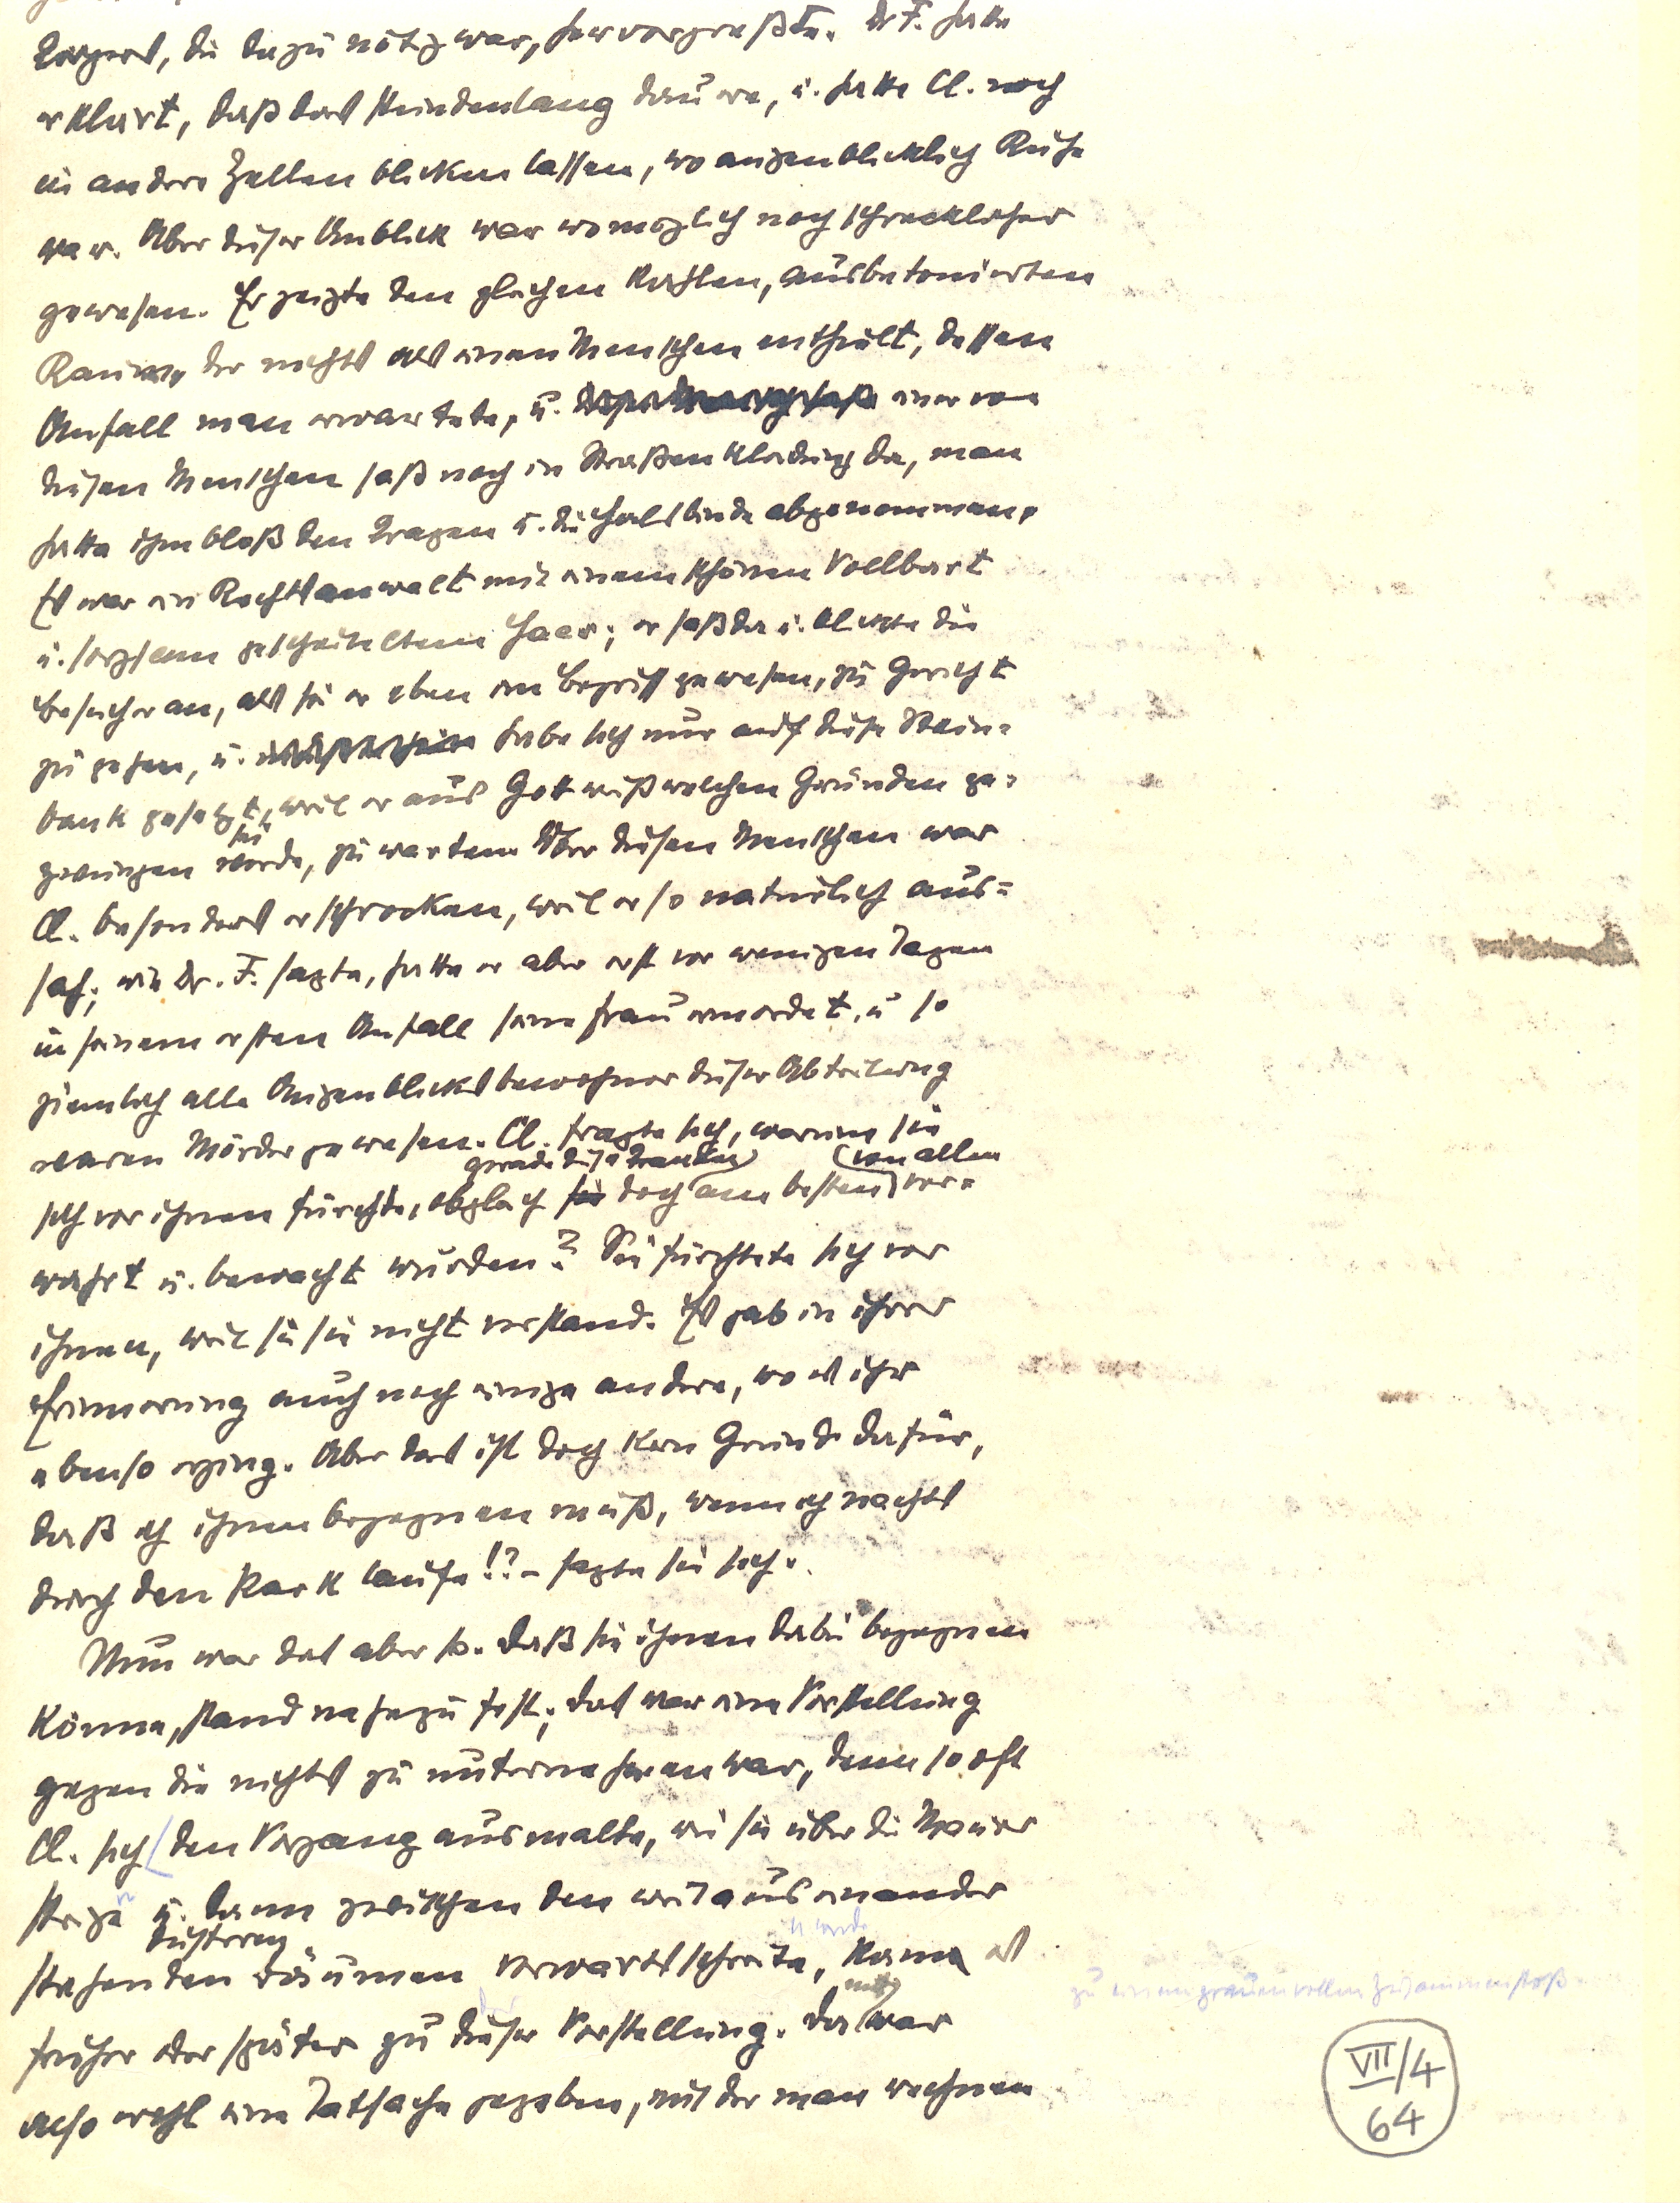 Körpers, die dazu nötig war, hervorpreßte. Dr F. hatte
erklärt, daß das stundenlang dauere, u. hatte Cl. noch
in andere Zellen blicken lassen, wo augenblicklich Ruhe
war. Aber dieser Anblick war womöglich noch schrecklicher
gewesen. Er zeigte den gleichen kahlen, ausbetonierten
Raum, der nichts als einen Menschen enthielt, dessen
Anfall man erwartete, u. einer von
diesen Menschen saß noch in Straßenkleidung da, man
hatte ihm bloß den Kragen u. die Halsbinde abgenommen.
Es war ein Rechtsanwalt mit einem schönen Vollbart
u. sorgsam gescheiteltem Haar; er saß da u. blickte die
Besucher an, als sei er eben im Begriff gewesen, zu Gericht
zu gehen, u. habe sich nur auf diese Stein=
bank gesetzt, weil er aus Gott weiß welchen Gründen ge=
zwungen werde, zu warten. Über diesen Menschen war
sei
Cl. besonders erschrocken, weil er so natürlich aus=
sah; wie Dr. F. sagte, hatte er aber erst vor wenigen Tagen
in seinem ersten Anfall seine Frau ermordet, u so
ziemlich alle Augenblicksbewohner dieser Abteilung
waren Mörder gewesen. Cl. fragte sich, warum sie
gerade diese Kranken von allen
sich vor ihnen fürchte, obgleich sie doch am besten ver=
wahrt u. bewacht wurden? Sie fürchtete sich vor
ihnen, weil sie sie nicht verstand. Es gab in ihrer
Erinnerung auch noch einige andere, wo es ihr
ebenso erging. Aber das ist doch kein Grund dafür,
daß ich ihnen begegnen muß, wenn ich nachts
durch den Park laufe!? – sagte sie sich.
Nun war das aber so. Daß sie ihnen dabei begegnen
könne, stand nahezu fest; das war eine Vorstellung
gegen die nichts zu unternehmen war, denn so oft
Cl. sich den Vorgang ausmalte, wie sie über die Mauer
steige u. dann zwischen den weit auseinander
düsteren
stehenden Bäumen vorwärtsschreite, kam es
zu einem grauenvollen Zusammenstoß
früher oder später zu dieser Vorstellung. Da war
mit
also wohl eine Tatsache gegeben, mit der man rechnen
VII/4
64